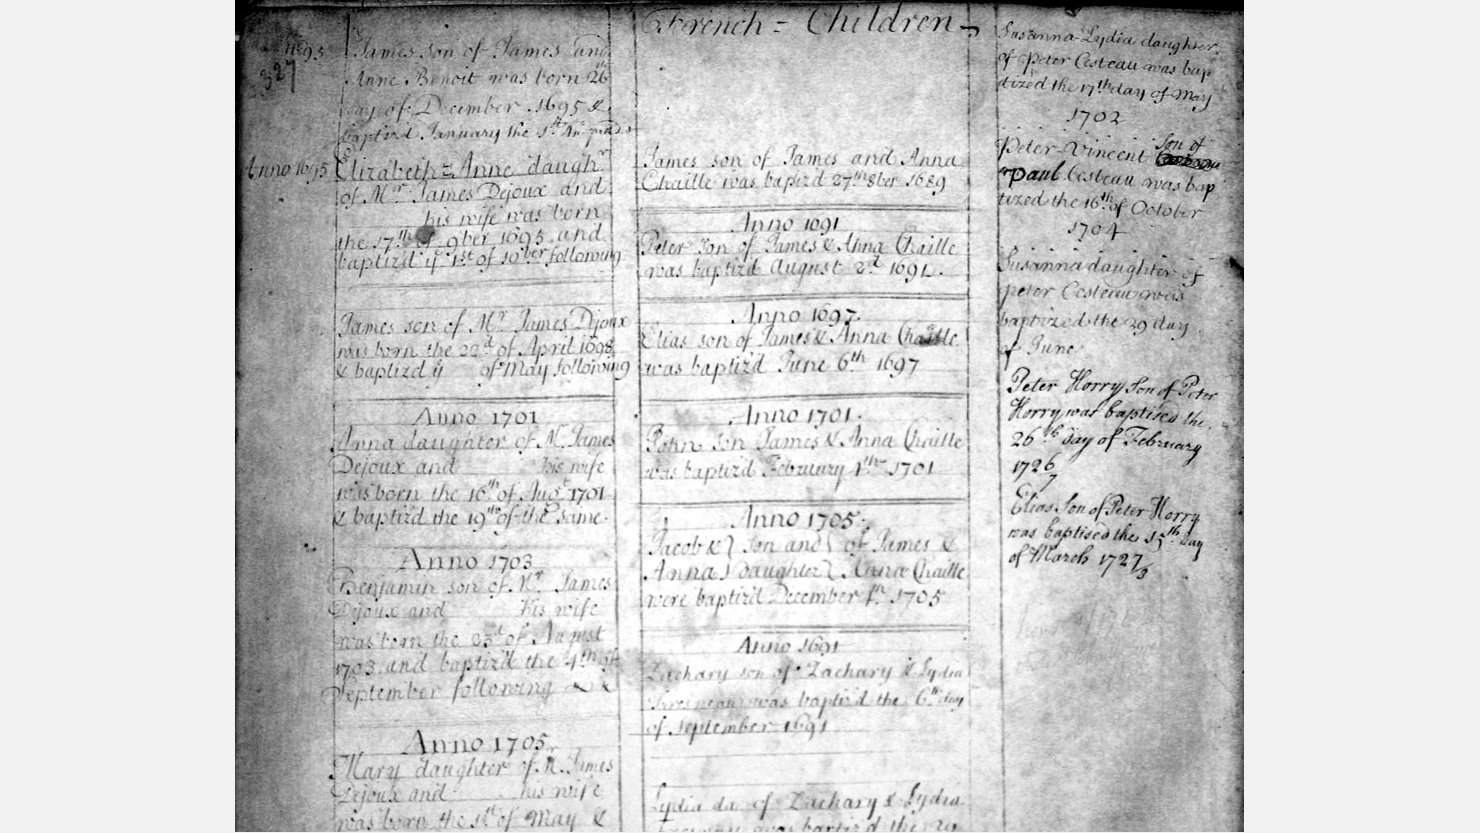 French = Children
1695
327
James son of James and
Anne Benoit was born 26th
day of December . 1695 &
baptizd January the 1st
Anno 1695
Elizabeth = Anne daughr
of Mr James Dejoux and
his wife was born
the 17th of 9ber 1695 and
baptiz'd ye 1st of 10ber following
James son of Mr James Dejoux
was born the 22d of April 1698
& baptizd ye of May following
Anno 1701
Anna daughter of Mr James
Dejoux and his wife
was born the 16th of Augt 1701
& baptizd the 19th of the same.
Anno 1703
Benjamin son of Mr James
Dejoux and his wife
was born the 23d of August
1703 and baptiz'd the 4th of
September following & &
Anno 1705
Mary daughter of Mr James
Dejoux and his wife
was born the 1st of May &
James son of James and Anna
Chaille was baptizd 27th 8ber 1689
Anno 1691
Peter son of James & Anna Chaille
was baptiz'd August 2d 1691.
Anno 1697.
Elias son of James & Anna Chaille
was baptiz'd June 6th 1697
Anno 1701.
John son James & Anna Chaille
was baptiz'd February 1th 1701
Anno 1705.
Jacob & } son and } of James &
Anna } daughter } Anna Chaille
were baptiz'd December 1th. 1705
Anno 1691
Zachary son of Zachary & Lydia
was baptiz'd the 6th day
of September 1691
Lydia da. of Zachary & Lydia
was baptiz'd the 29
Susanna-Lydia daughter
of Peter Cesteau was bap
tized the 17th day of May
1702
Peter-Vincent Son of
Paul Cesteau was bap
tized the 16th of October
1704
Susanna daughter of
Peter Cesteau was
baptized the 29 day
of June
Peter Horry Son of Peter
Horry was baptised the
26th day of February
1726/7
Elias Son of Peter Horry
was baptised the 15th day
of March 1727/8